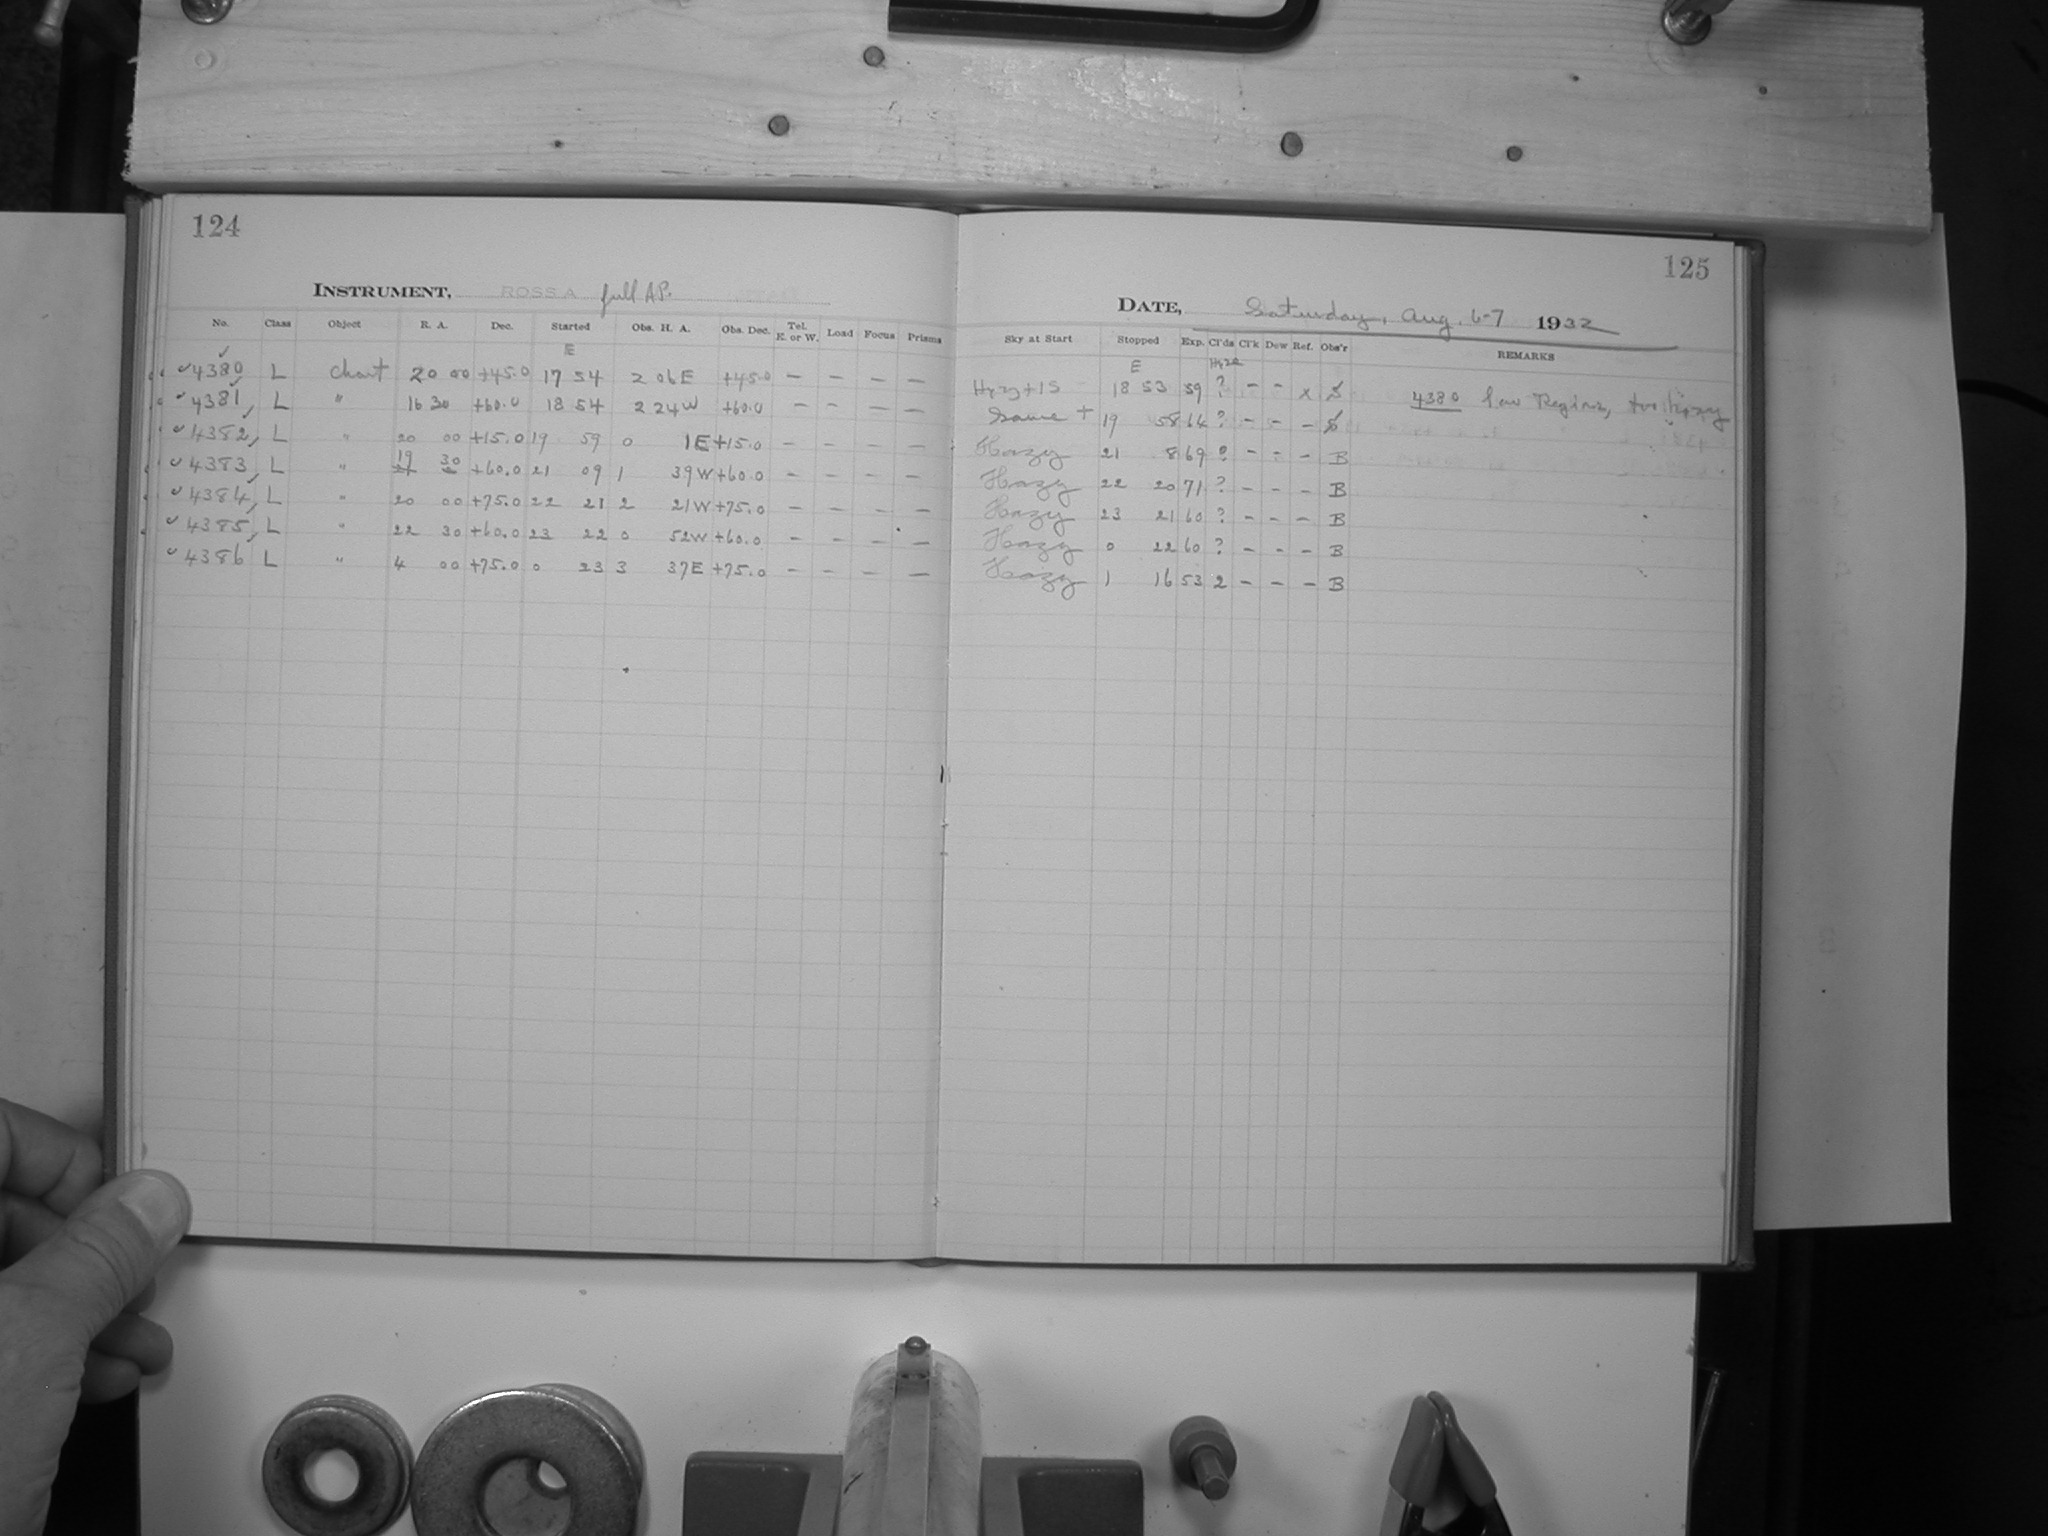 124
125
INSTRUMENT, ROSS A full AP.
DATE, Saturday, Aug. 6-7 1932
No. Class Object R. A. Dec. Started Obs. H. A. Obs. Dec. Tel. E. or W. Load Focus Prisms Sky at Start Stopped Exp. Cl'ds Cl'k Dew Ref. Obs'r REMARKS
E E Haze
4380 L Chart 20 00 +45.0 17 54 2 06E +45.0 — — — — Hazy +15 18 53 59 ? - - x S 4380 Low Regina, too hazy
4381 L " 16 30 +60.0 18 54 2 24W +60.0 — — — — Same + 19 58 64 ? - - - S
4382, L " 20 00 +15.0 19 59 0 1E +15.0 — — — — Hazy 21 8 69 ? - - - B
19 30
4383, L " +60.0 21 09 1 39W +60.0 — — — — Hazy 22 20 71 ? - - - B
4384, L " 20 00 +75.0 22 21 2 21W +75.0 — — — — Hazy 23 21 60 ? - - - B
4385, L " 22 30 +60.0 23 22 0 52W +60.0 — — — — Hazy 0 22 60 ? - - - B
4386 L " 4 00 +75.0 0 23 3 37E +75.0 — — — — Hazy 1 16 53 2 - - - B